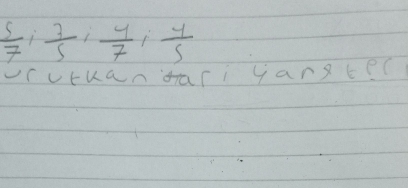 5/7 ; 7/5 ; 4/7 ; 4/5
urutkan dari yang ter